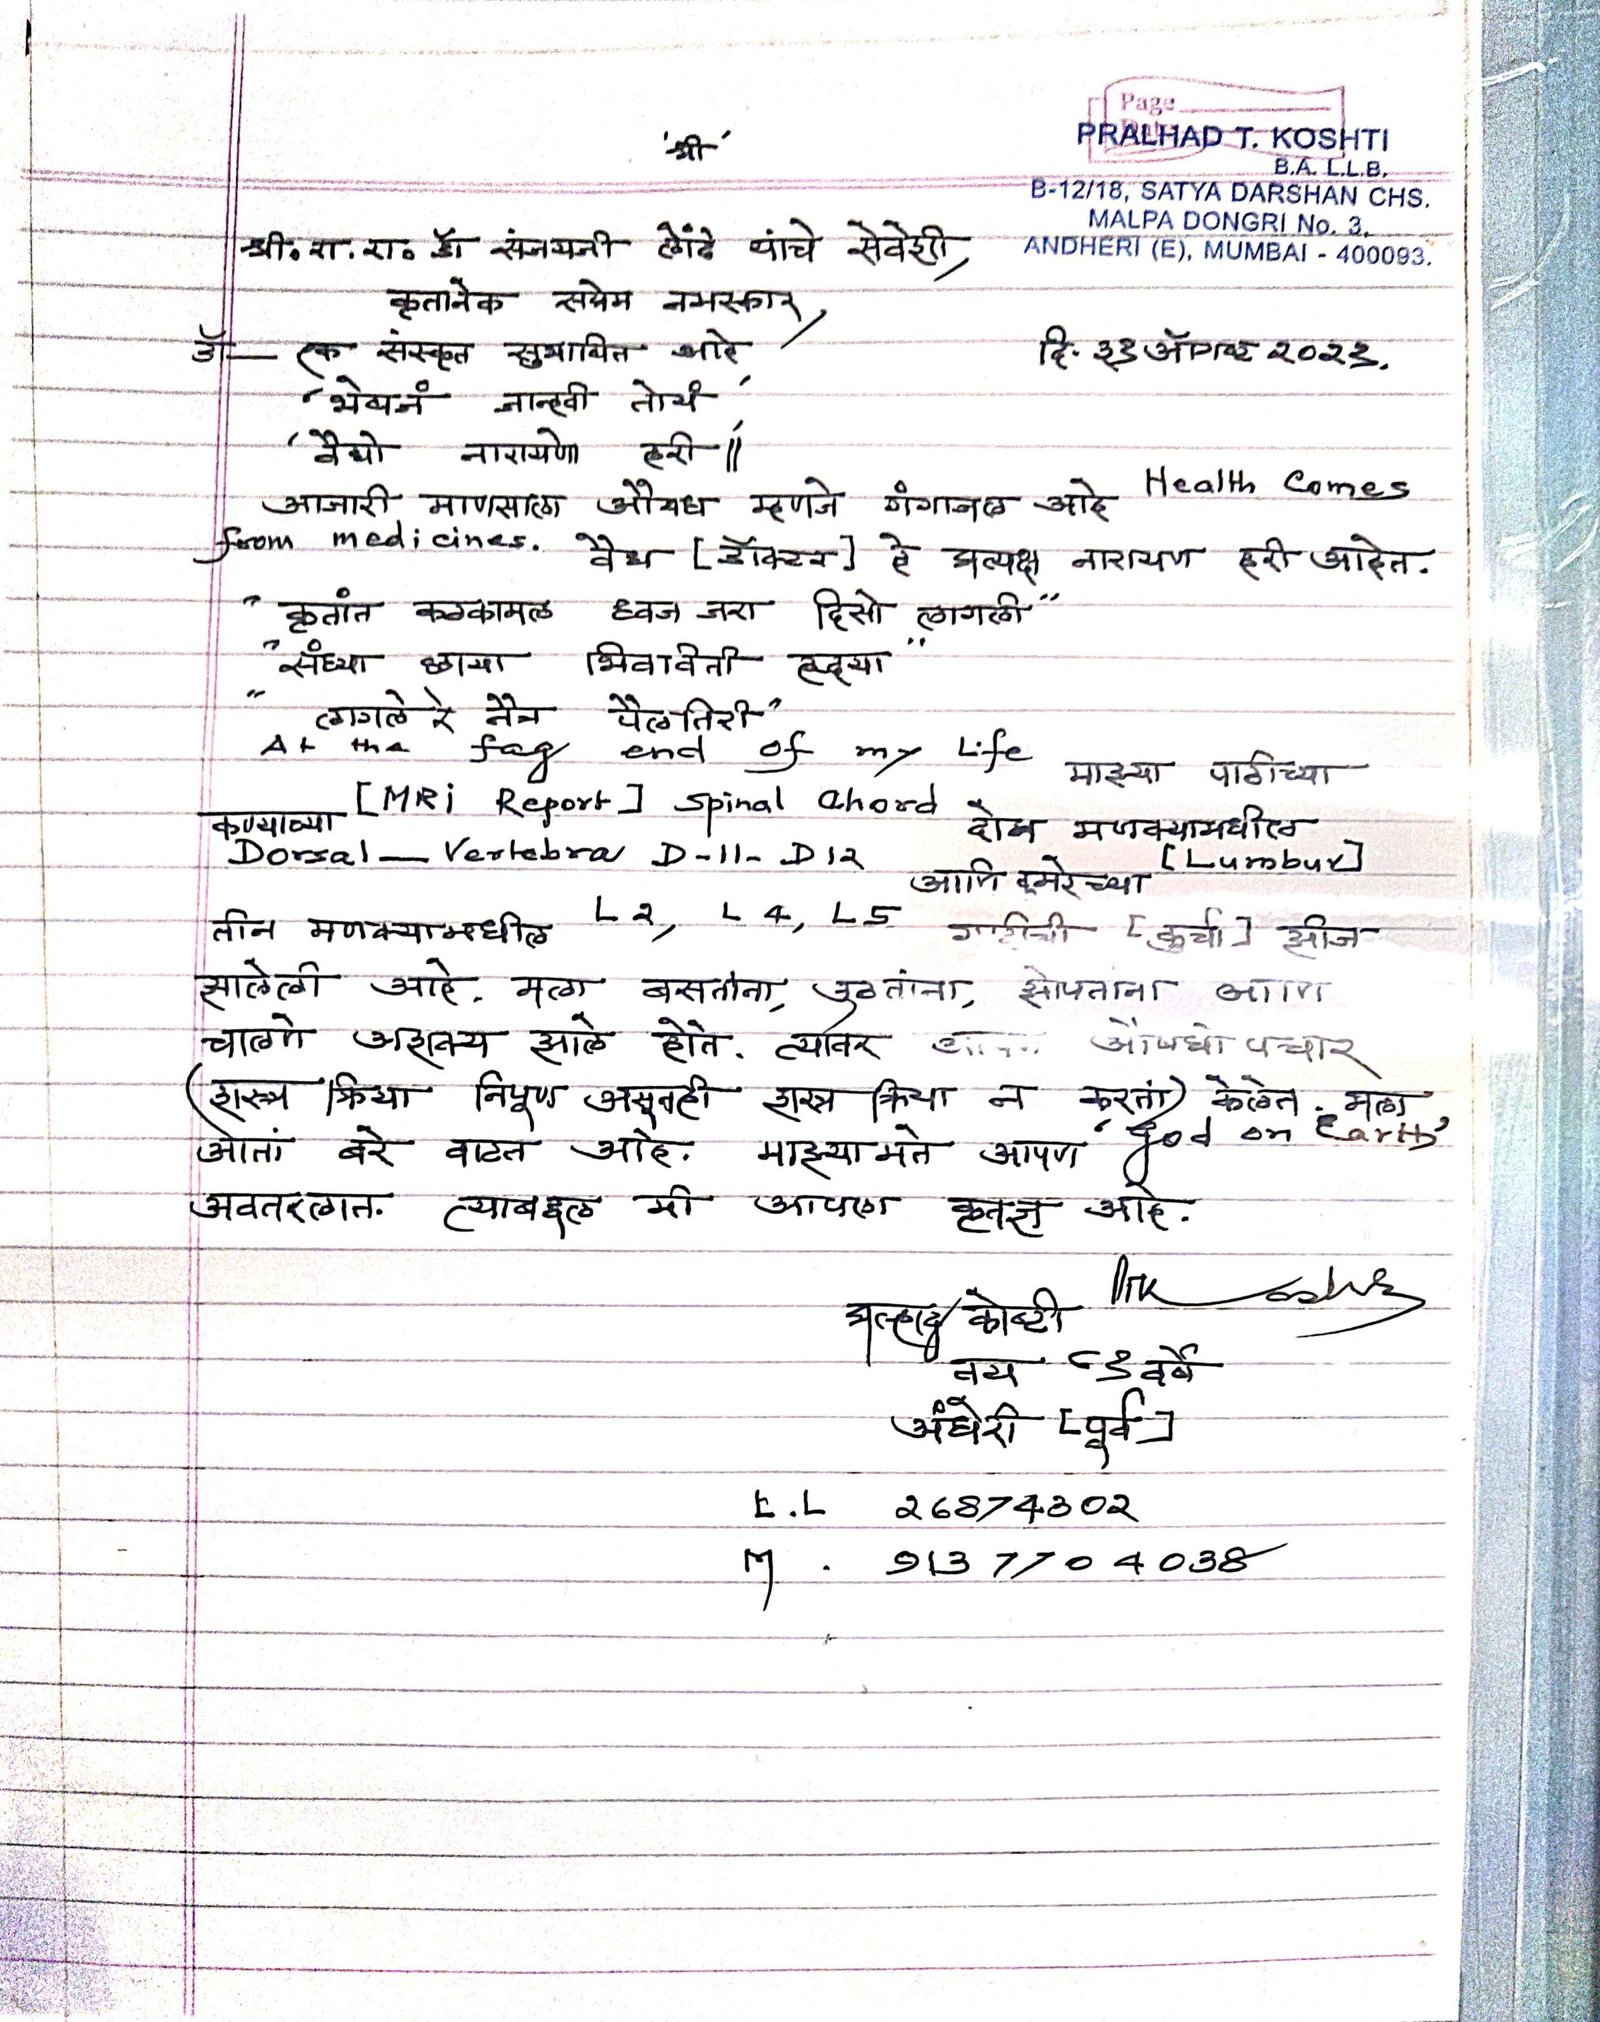 'श्री'
Page
PRALHAD T. KOSHTI
B.A. L.L.B.
B-12/18, SATYA DARSHAN CHS.
MALPA DONGRI No. 3,
ANDHERI (E), MUMBAI - 400093.
श्री. रा. रा. डॉ संजयजी लोंढे यांचे सेवेशी,
कृतानेक सप्रेम नमस्कार,
डॉ— एक संस्कृत सुभाषित आहे
दि. २३ ऑगष्ट २०२३.
'भेषजं जान्हवी तोयं'
'वैद्यो नारायणो हरी'॥
आजारी माणसाला औषध म्हणजे गंगाजल आहे Health Comes
from medicines. वैद्य [डॉक्टर] हे प्रत्यक्ष नारायण हरी आहेत.
"कृतांत कटकामल ध्वज जरा दिसो लागली"
"संध्या छाया भिवविती हृदया"
"लागले रे नेत्र पैलतिरी"
At the fag end of my Life माझ्या पाठीच्या
कण्याच्या [MRi Report] Spinal Chord दोन मणक्यामधील
Dorsal — Vertebra D-11- D12 आणि कमरेच्या [Lumbur]
तीन मणक्यामधील L2, L4, L5 गादीची [कुर्चा] झीज
झालेली आहे. मला बसतांना, उठतांना, झोपताना आणि
चालणे अशक्य झाले होते. त्यावर औषधोपचार
(शस्त्र क्रिया निपूण असूनही शस्त्र क्रिया न करतां) केलेत. मला
आतां बरे वाटत आहे. माझ्यामते आपण 'God on Earth'
अवतरलात. त्याबद्दल मी आपला कृतज्ञ आहे.
प्रल्हाद कोष्टी
वय ८३ वर्षे
अंधेरी [पूर्व]
L.L 26874302
M. 9137704038